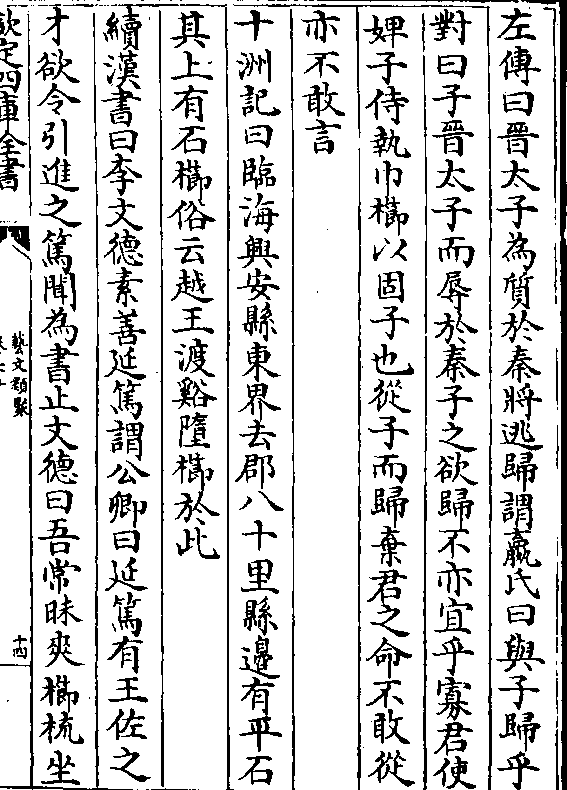 左傳曰晉太子為質於秦將逃歸謂嬴氏曰與子歸乎
對曰子晉太子而辱於秦子之欲歸不亦宜乎寡君使
婢子侍執巾櫛以固子也從子而歸棄君之命不敢從
亦不敢言
十洲記曰臨海興安縣東界去郡八十里縣邊有平石
其上有石櫛俗云越王渡谿墮櫛於此
續漢書曰李文德素善延篤謂公卿曰延篤有王佐之
才欲令引進之篤聞為書止文德曰吾常昧爽櫛梳坐
欽定四庫全書
藝文類聚
十四